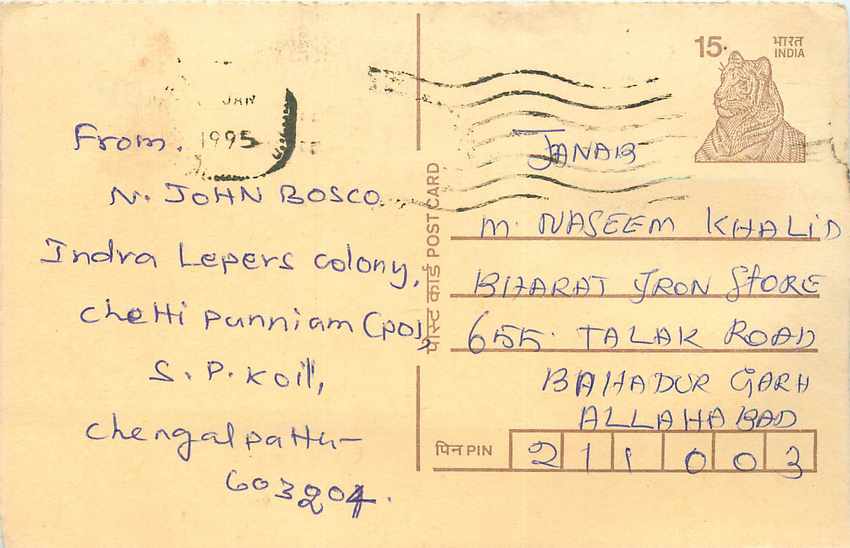 JAN
1995
From.
N. JOHN BOSCO.
Indra Lepers colony,
chetti punniam (po),
S. P. Koil,
chengalpattu-
603204.
पोस्ट कार्ड POST CARD
15.
भारत
INDIA
JANAB
M. NASEEM KHALID
BHARAT IRON STORE
655. TALAK ROAD
BAHADUR GARH
ALLAHABAD
पिन PIN
211003